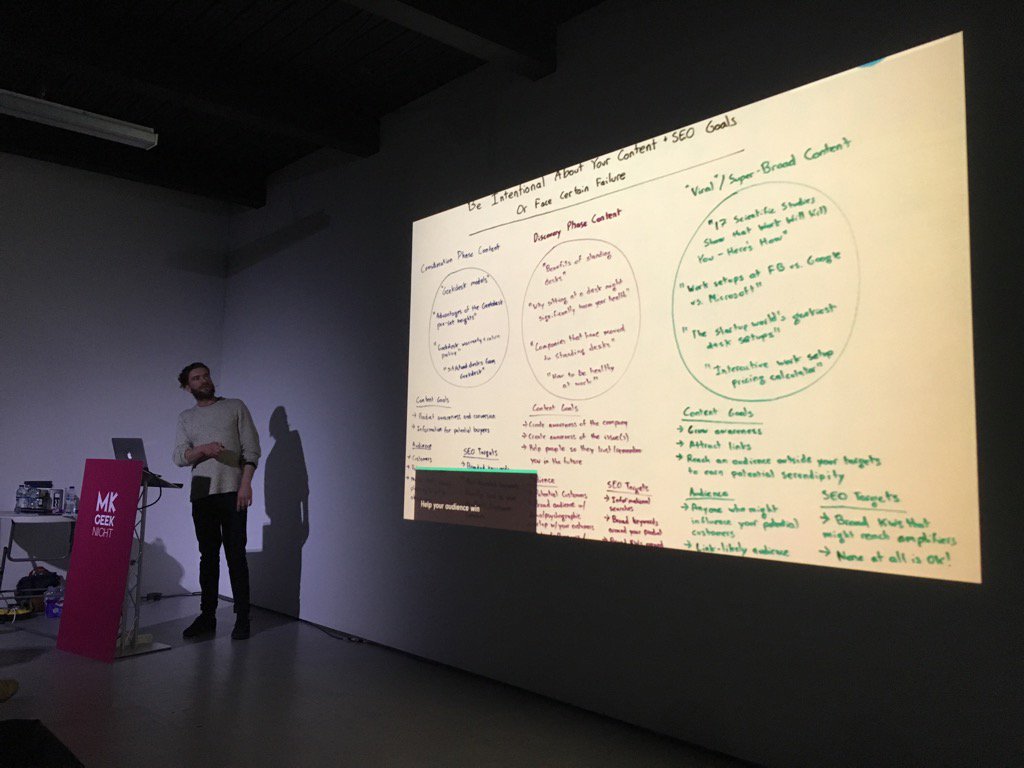 Be Intentional About Your Content + SEO Goals
Or Face Certain Failure
Consideration Phase Content
"Geekdesk models"
"Advantages of the Geekdesk
pre-set heights"
"Geekdesk warranty + return
policy"
"Sit/stand desks from
Geekdesk"
Content Goals
→ Product awareness and conversion
→ Information for potential buyers
Audience
→ Customers
SEO Targets
→ Branded keywords
Discovery Phase Content
"Benefits of standing
desks"
"Why sitting at a desk might
significantly harm your health"
"Companies that have moved
to standing desks"
"How to be healthy
at work"
Content Goals
→ Create awareness of the company
→ Create awareness of the issue(s)
→ Help people so they trust/remember
you in the future
Audience
potential customers
broad audience w/
psychographic
overlap w/ your customers
SEO Targets
→ Informational
searches
→ Broad keywords
around your product
"Viral"/Super-Broad Content
"17 Scientific Studies
Show that Work Will Kill
You - Here's How"
"Work setups at FB vs. Google
vs. Microsoft"
"The startup world's geekiest
desk setups"
"Interactive work setup
pricing calculator"
Content Goals
→ Grow awareness
→ Attract links
→ Reach an audience outside your targets
to earn potential serendipity
Audience
→ Anyone who might
influence your potential
customers
→ Link-likely audience
SEO Targets
→ Broad KWs that
might reach amplifiers
→ None at all is OK!
Help your audience win
MK
GEEK
NIGHT